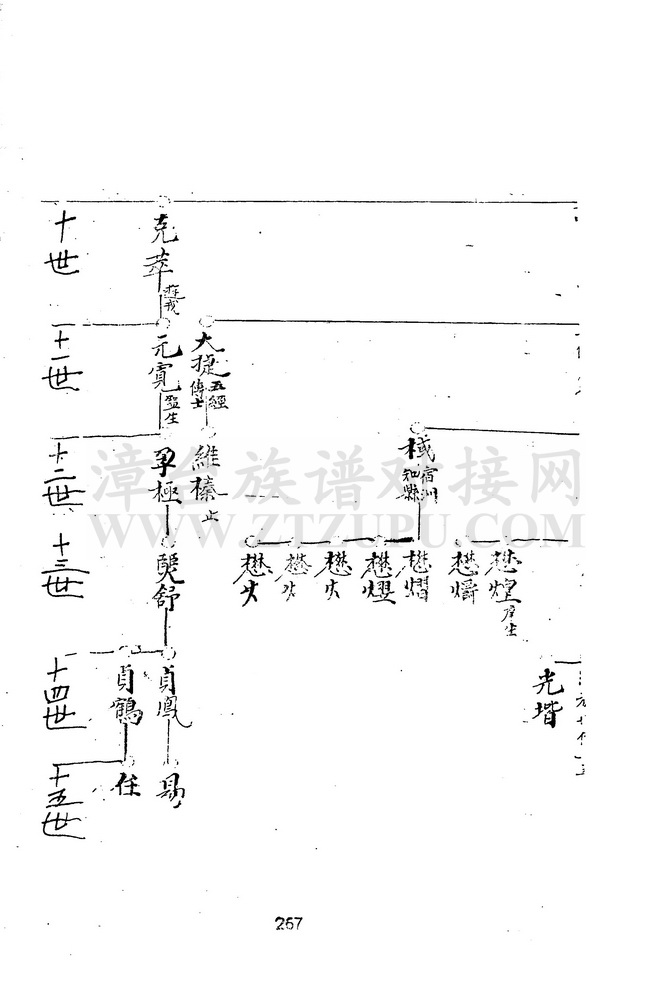 十世
克萃
十一世
大捷 五經博士
元寬 監生
十二世
棫 宿州知縣
維榛 止
孕極
十三世
懋煌 庠生
懋爝
懋熠
懋熤
懋
懋
懋
奭舒
十四世
光堦
貞鳳
貞鶴
十五世
易
任
漳台族谱对接网
WWW.ZTZUPU.COM
267